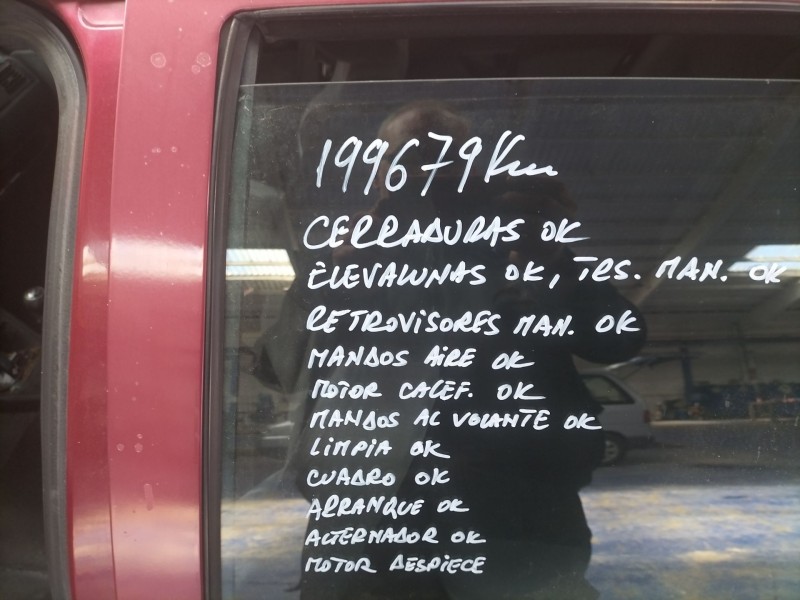 199679 Km
CERRADURAS OK
ELEVALUNAS OK, TRS. MAN. OK
RETROVISORES MAN. OK
MANDOS AIRE OK
MOTOR CALEF. OK
MANDOS AL VOLANTE OK
LIMPIA OK
CUADRO OK
ARRANQUE OK
ALTERNADOR OK
MOTOR DESPIECE